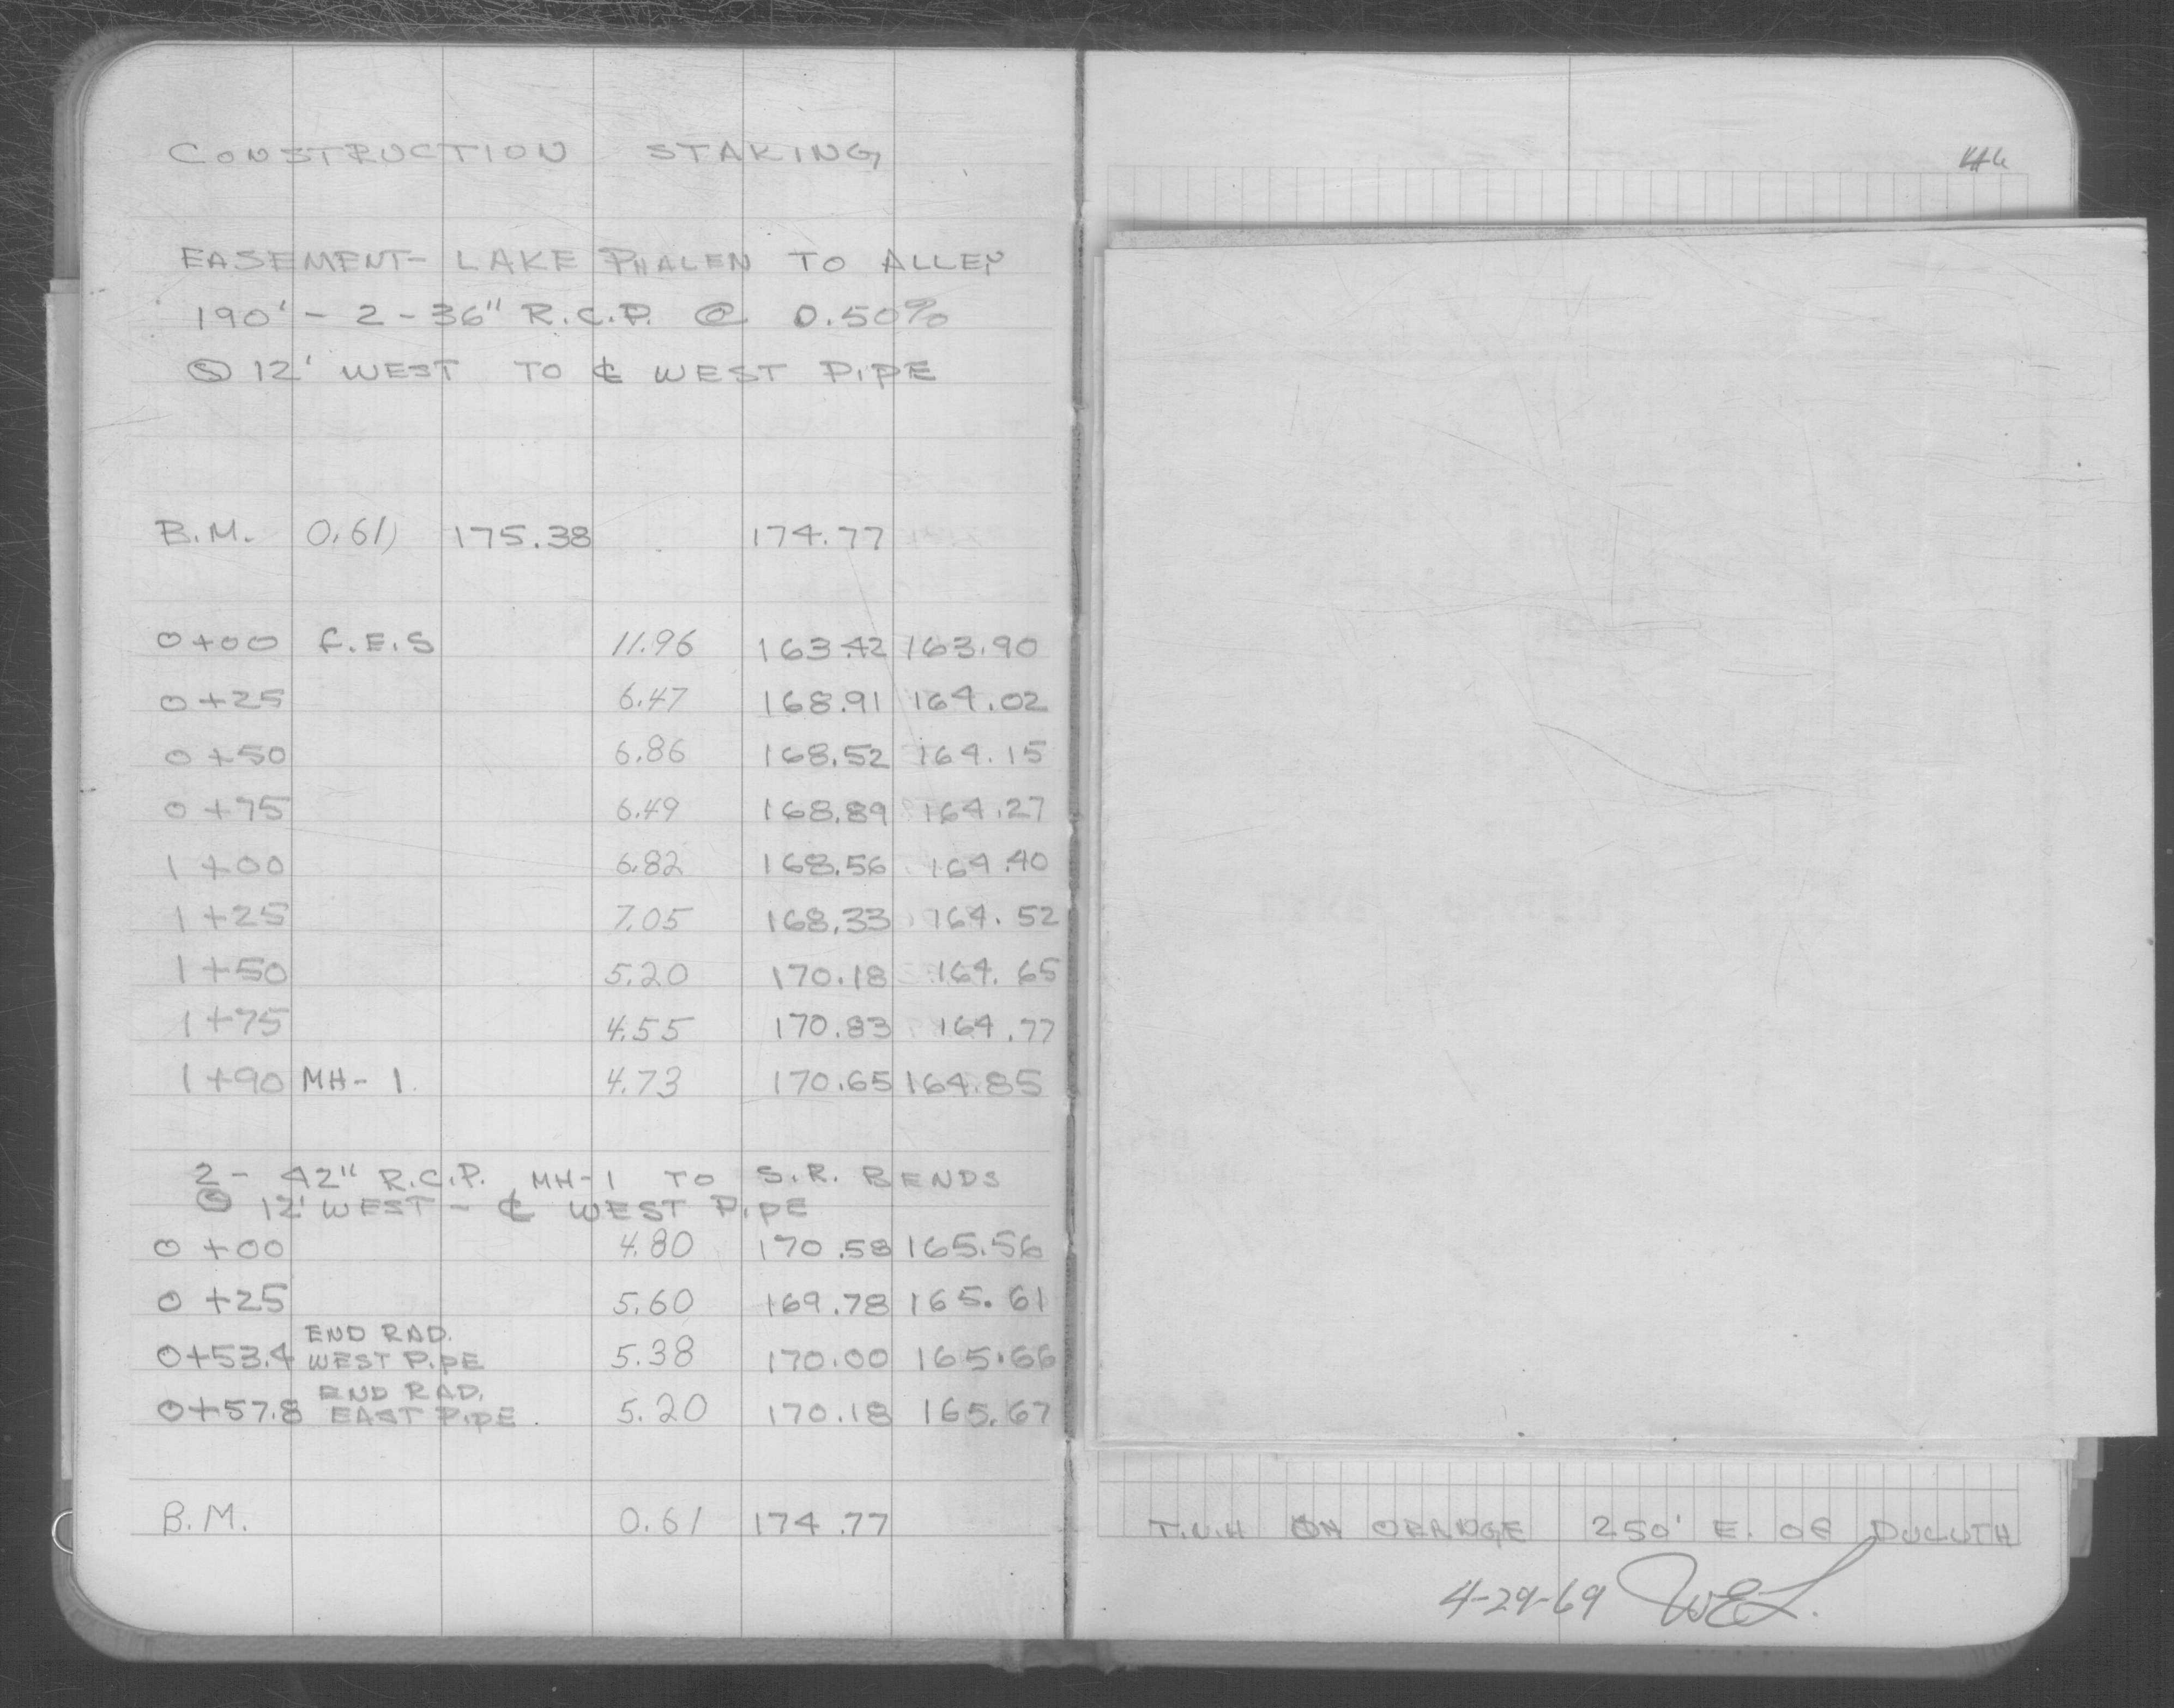 CONSTRUCTION STAKING
EASEMENT- LAKE PHALEN TO ALLEY
190' - 2 - 36" R.C.P. @ 0.50%
Ⓢ 12' WEST TO ℄ WEST PIPE
B.M. 0.61 175.38 174.77
0+00 F.E.S 11.96 163.42 163.90
0+25 6.47 168.91 164.02
0+50 6.86 168.52 164.15
0+75 6.49 168.89 164.27
1+00 6.82 168.56 164.40
1+25 7.05 168.33 164.52
1+50 5.20 170.18 164.65
1+75 4.55 170.83 164.77
1+90 MH-1 4.73 170.65 164.85
2- 42" R.C.P. MH-1 TO S.R. BENDS
Ⓢ 12' WEST - ℄ WEST PIPE
0+00 4.80 170.58 165.56
0+25 5.60 169.78 165.61
END RAD.
0+53.4 WEST PIPE 5.38 170.00 165.66
END RAD.
0+57.8 EAST PIPE. 5.20 170.18 165.67
B.M. 0.61 174.77
T.N.H ON ORANGE 250' E. OF DULUTH
4-29-69 WEL.